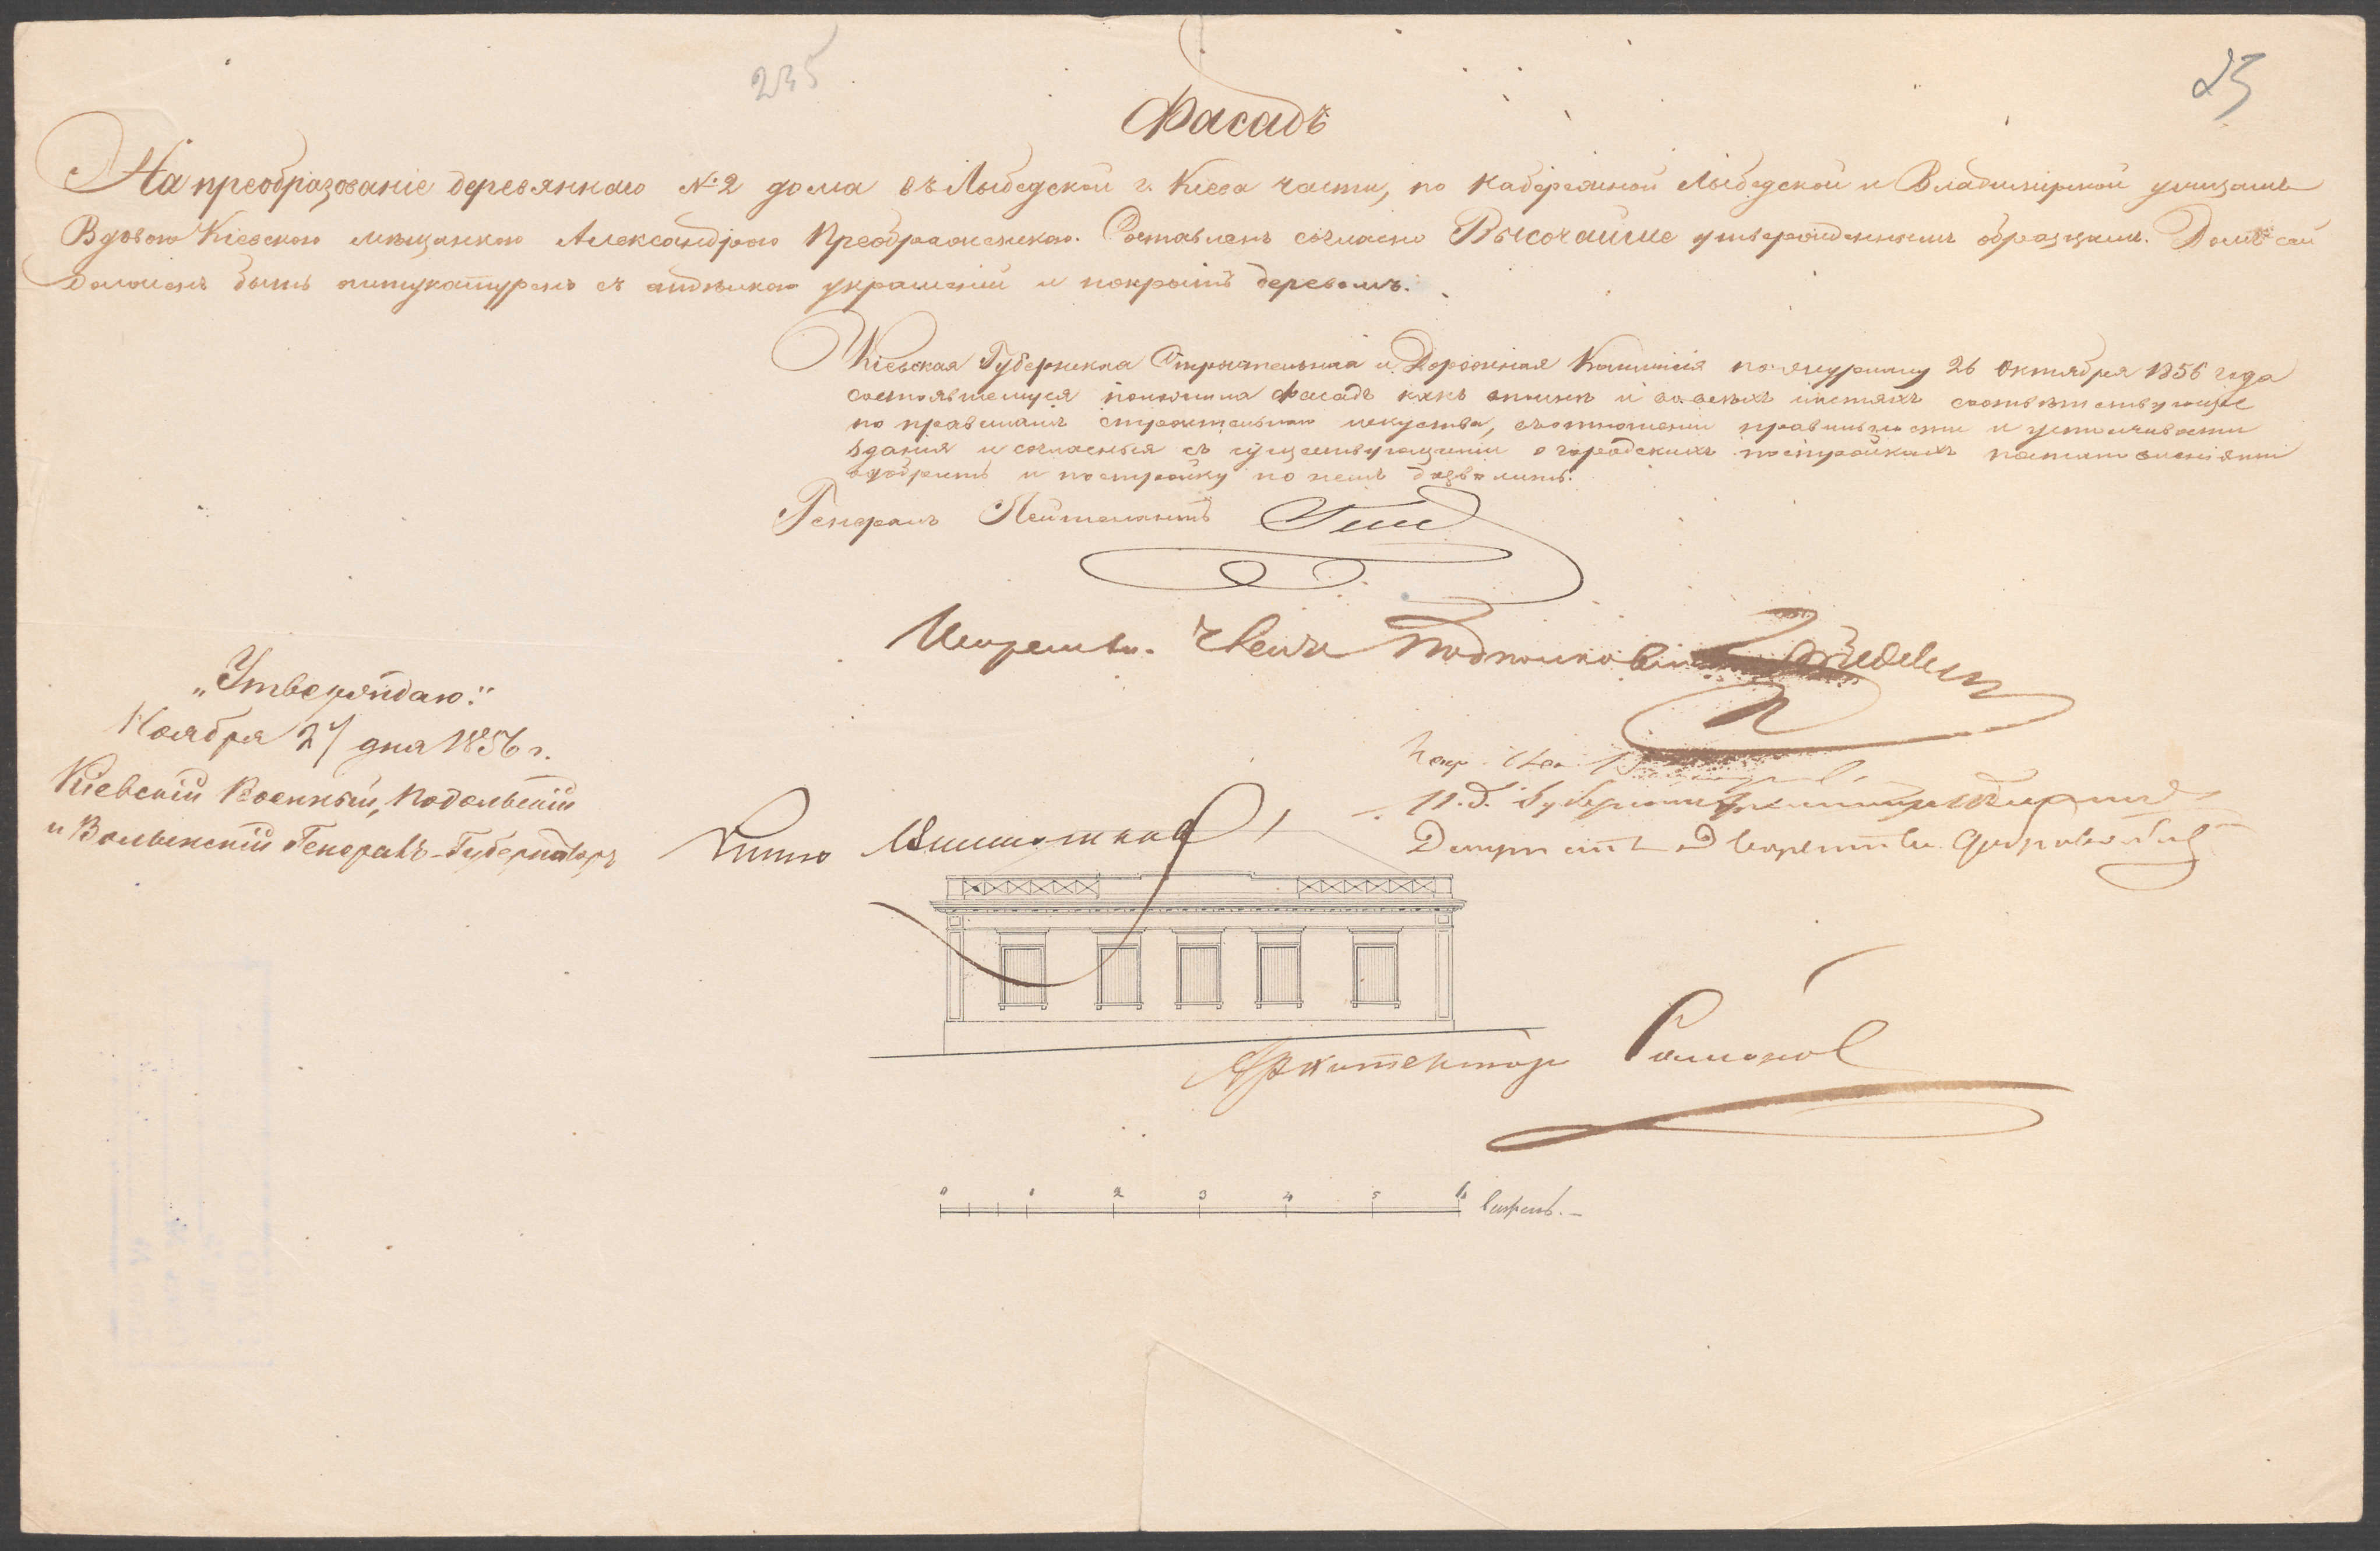 235
25
Фасадъ
На преобразованіе деревяннаго №2 дома въ Лыбедской г. Кіева части, по Набережной Лыбедской и Владимірской улицамъ
Вдовою Кіевскою мѣщанкою Александрою Преображенскою. Составленъ согласно Высочайше утвержденнымъ образцамъ. Домъ сей
долженъ быть оштукатуренъ съ отдѣлкою украшеній и покрытъ деревомъ.
Кіевская Губернская Строительная и Дорожная Коммисія по журналу 26 Октября 1856 года
состоявшемуся полагала фасадъ какъ вполнѣ и во всѣхъ частяхъ соотвѣтствующіе
по правиламъ строительнаго искуства, въ отношеніи правильности и устойчивости
зданія и согласный съ существующими о городскихъ постройкахъ постановленіями
одобрить и постройку по немъ дозволить.
Генералъ Лейтенантъ
Искуств. Членъ Подполковникъ
И.д. Губернскаго
Депутатъ Дворянства
„Утверждаю:“
Ноября 27 дня 1856 г.
Кіевскій Военный, Подольскій
и Волынскій Генералъ-Губернаторъ
Архитекторъ
0 1 2 3 4 5 6 Сажень.